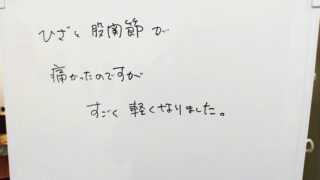 ひざと股関節が
痛かったのですが
すごく軽くなりました。